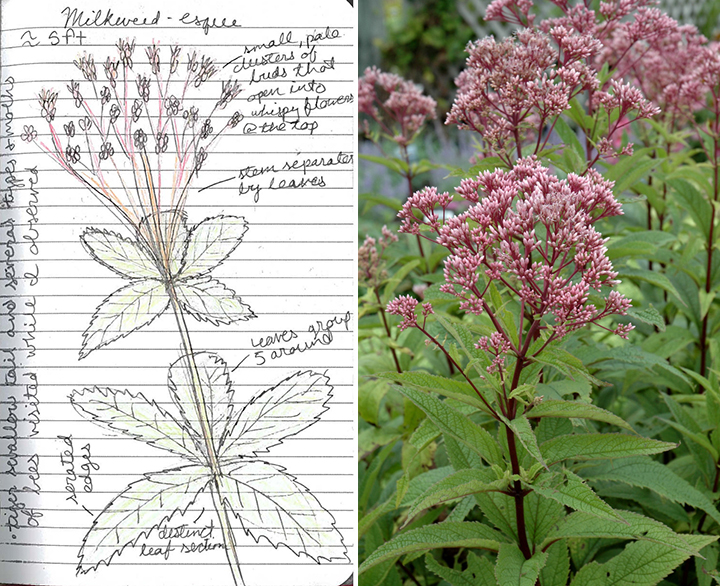 Milkweed - espiee
≈ 5ft
small, pale
clusters of
buds that
open into
whispy flowers
@ the top
stem separates
by leaves
leaves group
5 around
serated
edges
distinct
leaf section
tiger swallow tail and several types
of bees visited while I observed